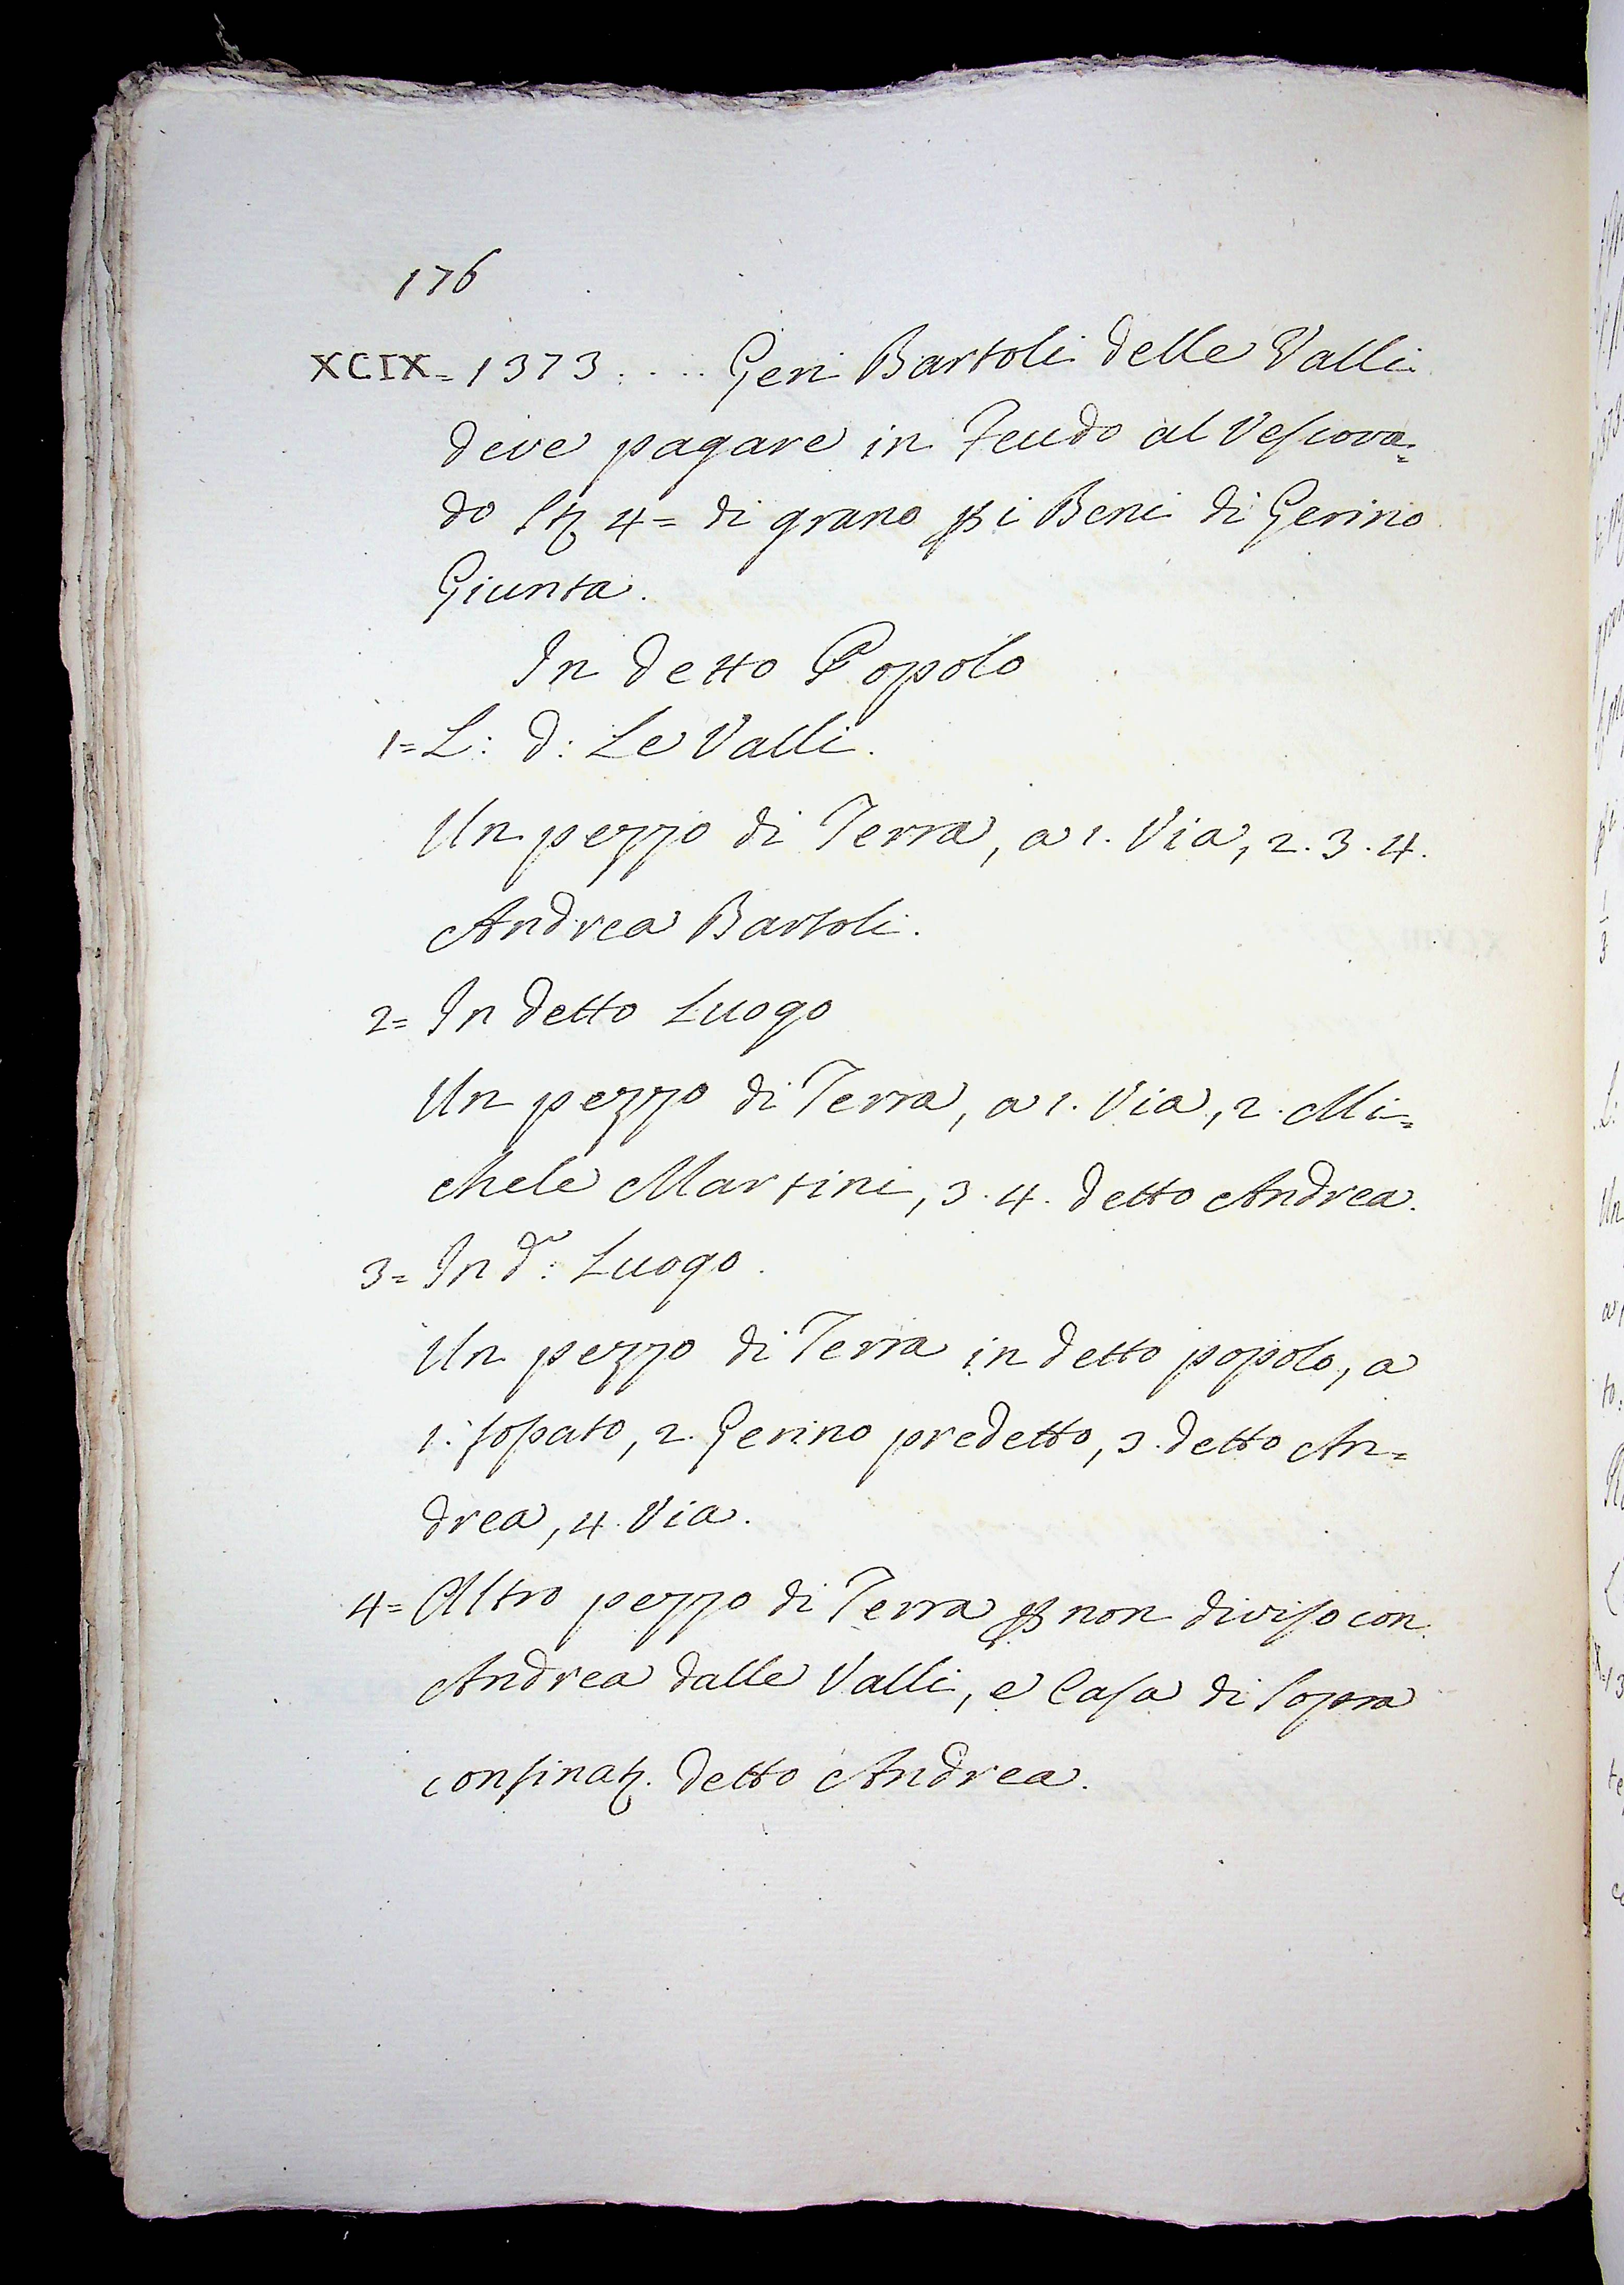 176
XCIX = 1373 . . . . Geri Bartoli delle Valli
deve pagare in Feudo al Vescova=
do Stʒ 4 = di grano ꝑ i Beni di Gerino
Giunta.
In detto Popolo
1 = L: d: Le Valli.
Un pezzo di Terra, a 1. Via, 2. 3. 4.
Andrea Bartoli.
2 = In detto Luogo
Un pezzo di Terra, a 1. Via, 2. Mi=
chele Martini, 3. 4. detto Andrea.
3 = In d.º: Luogo.
Un pezzo di Terra in detto popolo, a
1. fossato, 2. Gerino predetto, 3. detto An=
drea, 4. Via.
4 = Altro pezzo di Terra ꝑ non diviso con
Andrea dalle Valli, e Casa di Sopra
confinatʒ. detto Andrea.